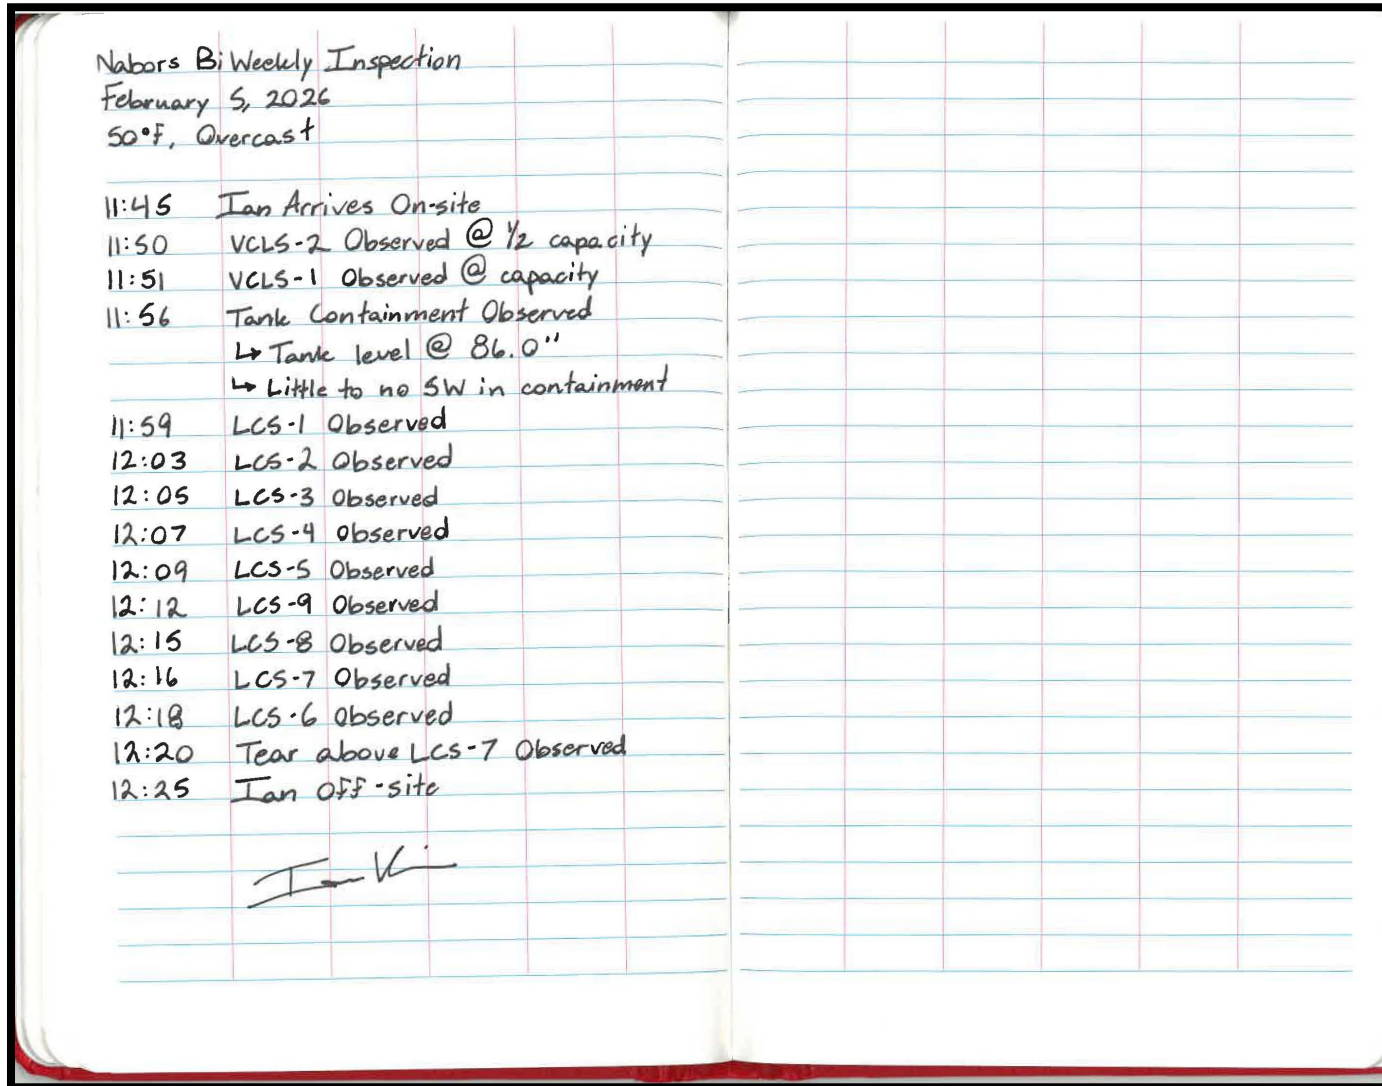 Nabors Bi Weekly Inspection
February 5, 2026
50°F, Overcast
11:45 Ian Arrives On-site
11:50 VCLS-2 Observed @ 1/2 capacity
11:51 VCLS-1 Observed @ capacity
11:56 Tank Containment Observed
↳ Tank level @ 86.0"
↳ Little to no SW in containment
11:59 LCS-1 Observed
12:03 LCS-2 Observed
12:05 LCS-3 Observed
12:07 LCS-4 Observed
12:09 LCS-5 Observed
12:12 LCS-9 Observed
12:15 LCS-8 Observed
12:16 LCS-7 Observed
12:18 LCS-6 Observed
12:20 Tear above LCS-7 Observed
12:25 Ian Off-site
Ian